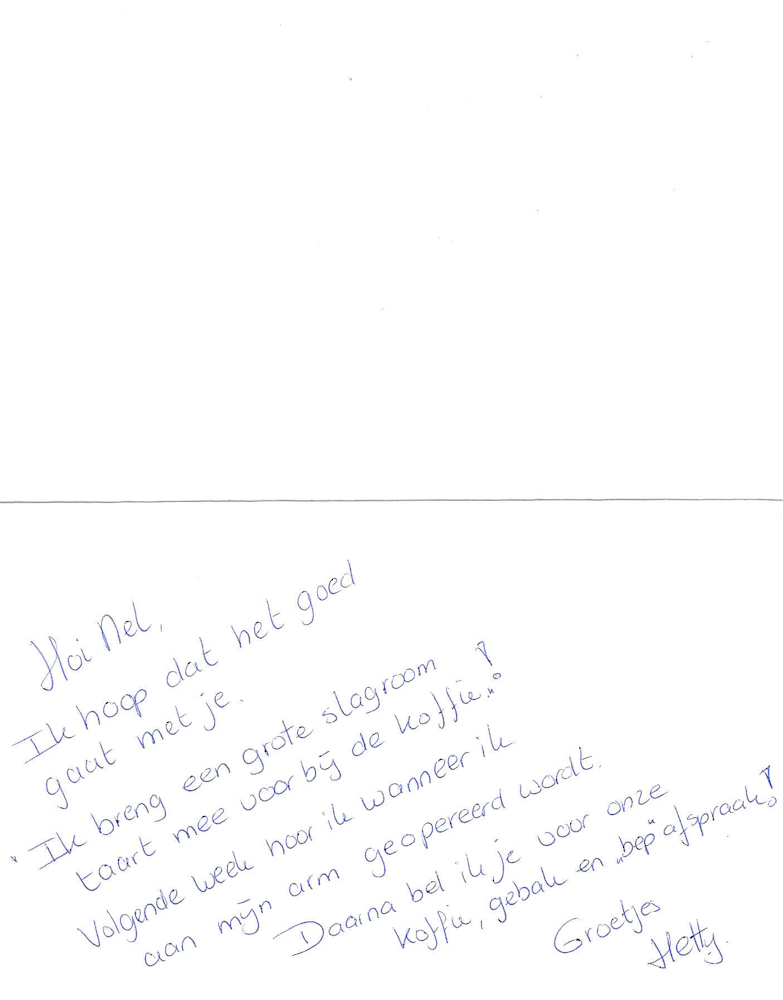 Hoi Nel,
Ik hoop dat het goed
gaat met je.
"Ik breng een grote slagroom
taart mee voor bij de koffie"!
Volgende week hoor ik wanneer ik
aan mijn arm geopereerd wordt.
Daarna bel ik je voor onze
koffie, gebak en „bep" afspraak!
Groetjes
Hetty.